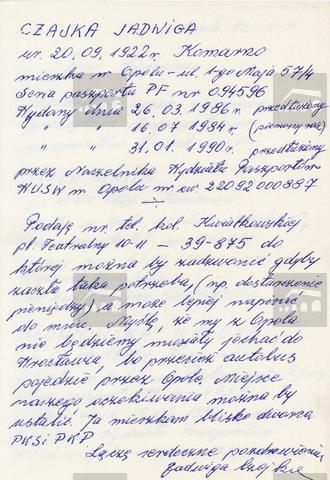 CZAJKA JADWIGA
ur. 20.09.1922 r. Komarno
mieszka w Opolu - ul. 1-go Maja 57/4
Seria paszportu PF nr 094596
Wydany dnia 26.03.1986 r. przedłużony
" " 16.07 1984 r. (pierwszy raz)
" " 31.01. 1990 r. przedłużony
przez Naczelnika Wydziału Paszportów
WUSW w Opolu nr ew. 22092000887
Podaję nr. tel. kol. Kwiatkowskiej
pl. Teatralny 10-11 — 39-875 do
której można by zadzwonić gdyby
zaszła taka potrzeba, (np. dostarczenie
pieniędzy), a może lepiej napisać
do mnie. Myślę, że my z Opola
nie będziemy musiały jechać do
Wrocławia, bo przecież autobus
pojedzie przez Opole. Miejsce
naszego oczekiwania można by
ustalić. Ja mieszkam blisko dworca
PKS i PKP
Łączę serdeczne pozdrowienia
Jadwiga Czajka